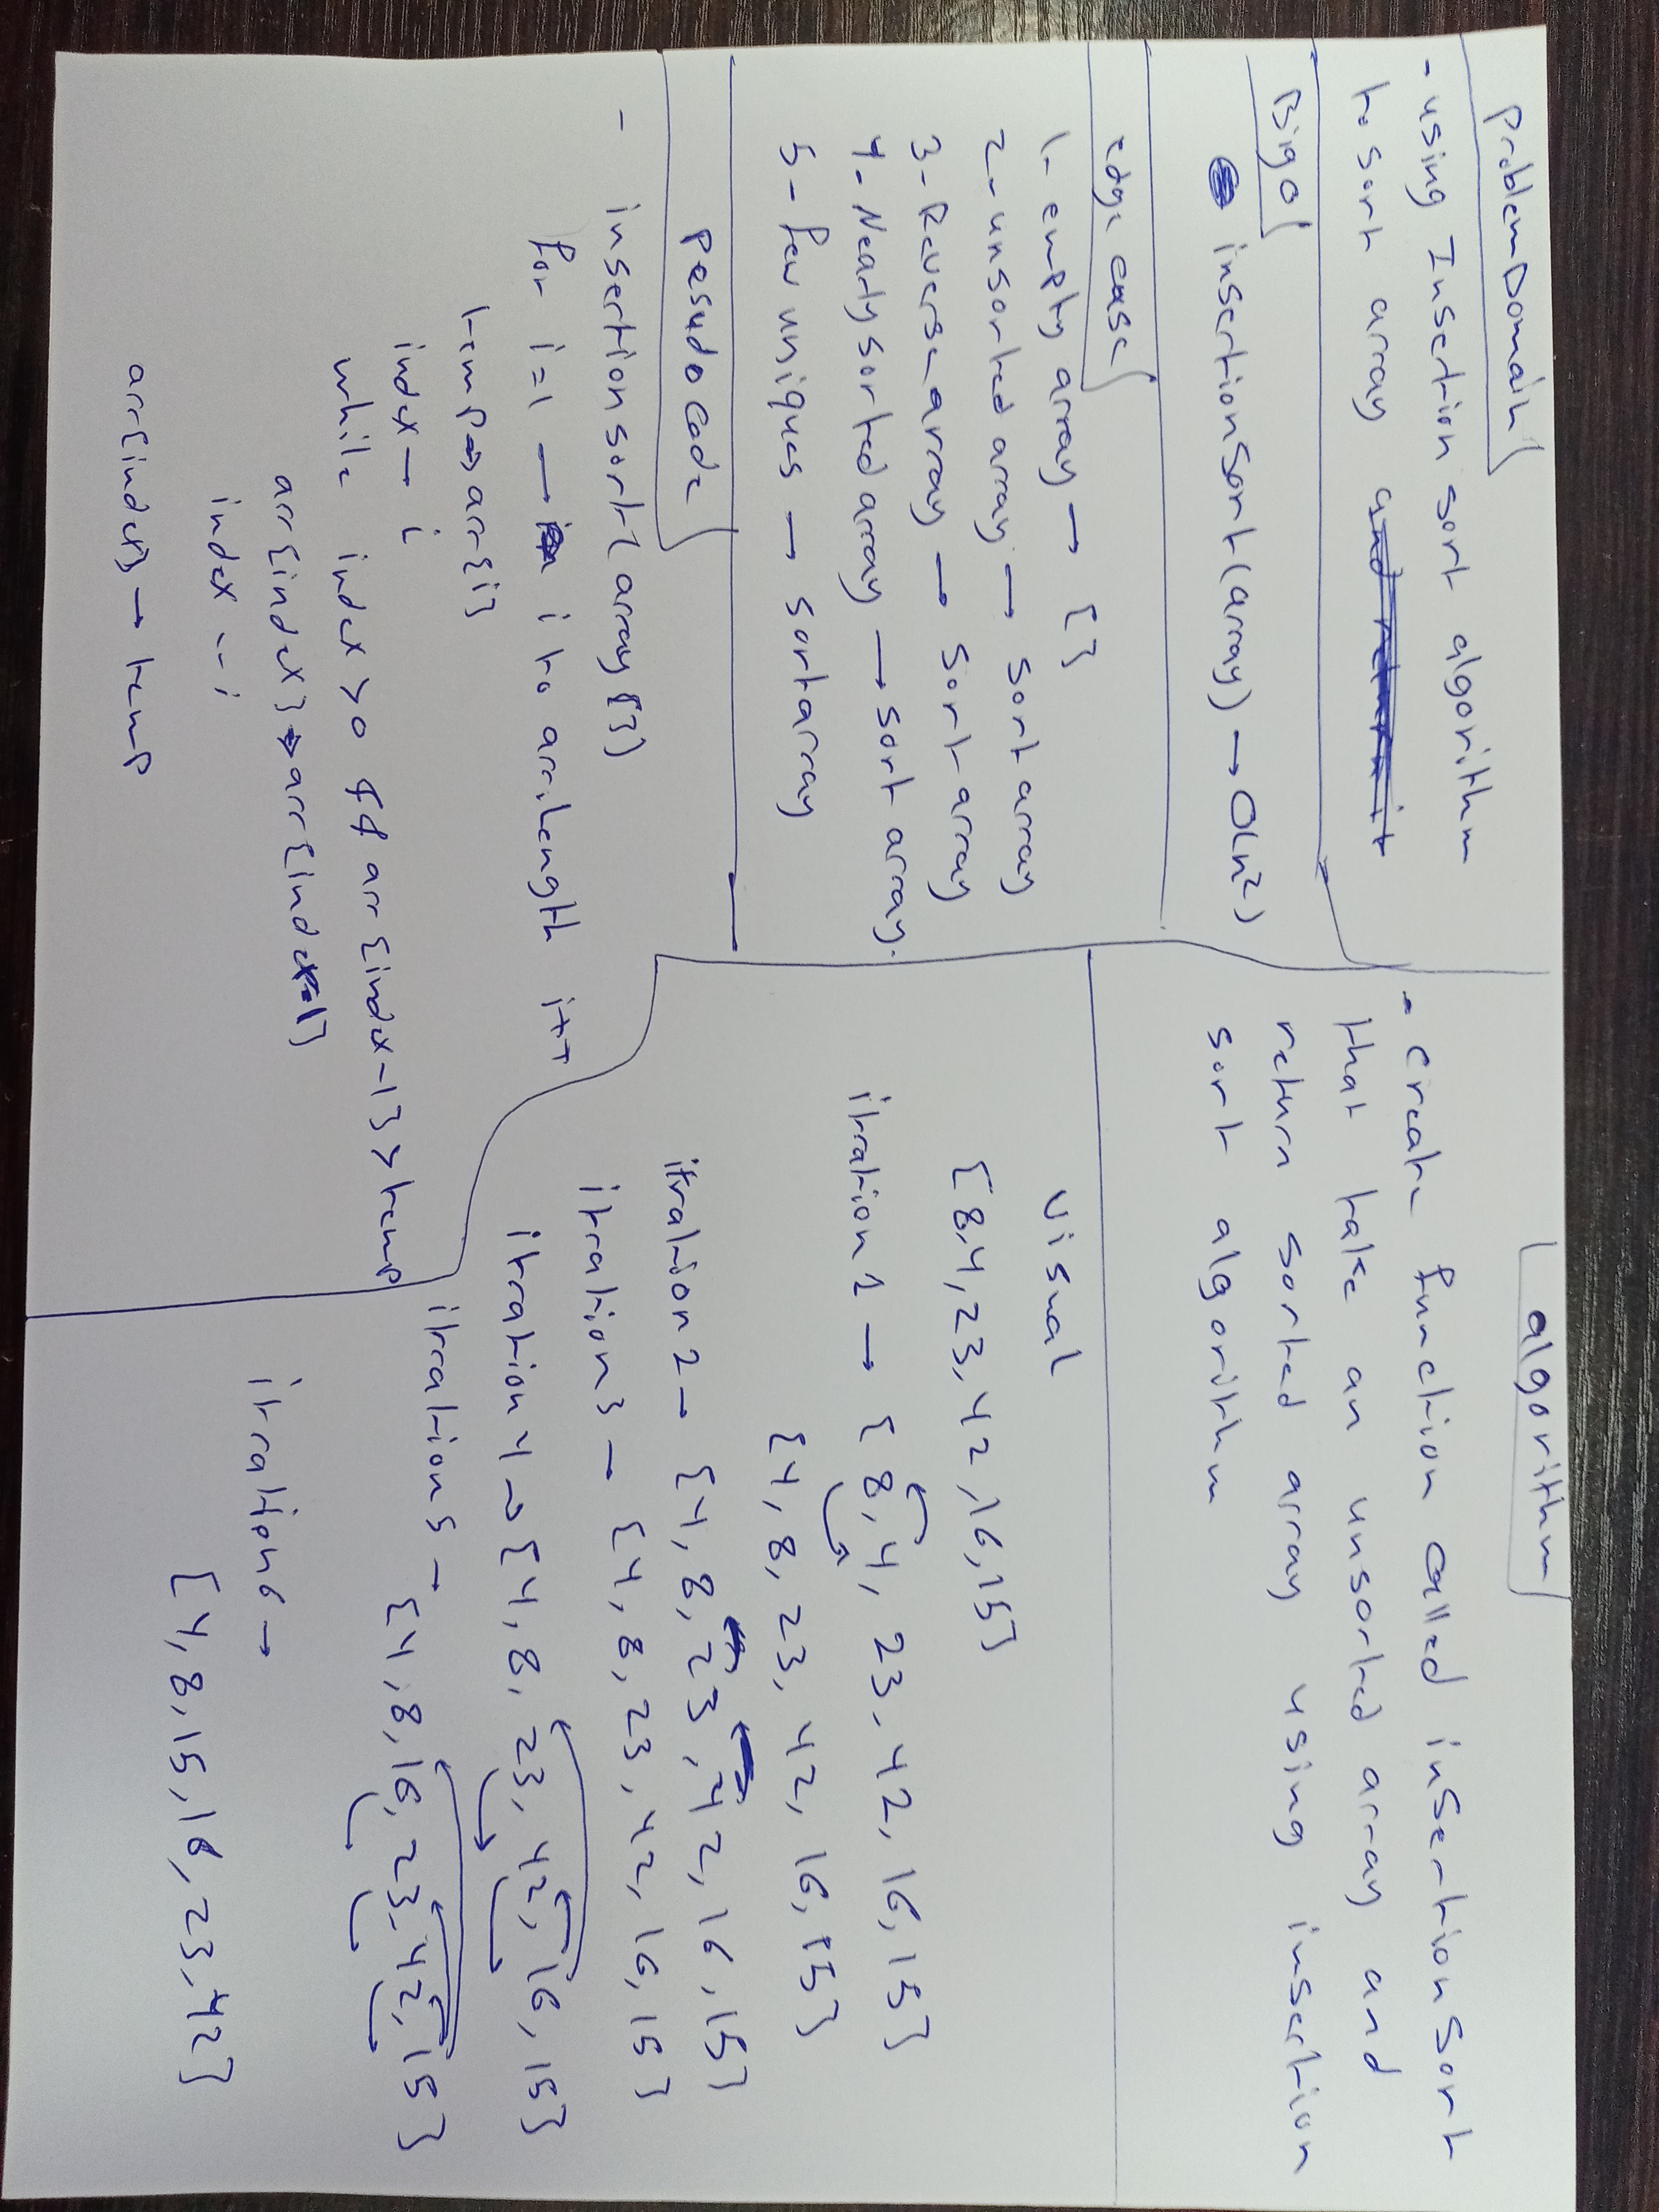 Problem Domain
- using Insertion sort algorithm
to sort array and return it
Big O
insertionSort(array) → O(n²)
edge case
1- empty array → []
2- unsorted array → sort array
3- Reverse array → sort array
4- Nearly sorted array → sort array.
5- few uniques → sort array
Pesudo code
- insertionsort(array[])
for i=1 → i to arr.length i++
temp → arr[i]
index → i
while index > 0 && arr[index-1] > temp
arr[index] → arr[index-1]
index --;
arr[index] → temp
algorithm
- Create function called insertionSort
that take an unsorted array and
return sorted array using insertion
sort algorithm
Visual
[8,4,23,42,16,15]
itration 1 → [8,4,23,42,16,15]
[4,8,23,42,16,15]
itration 2 → [4,8,23,42,16,15]
itration 3 → [4,8,23,42,16,15]
itration 4 → [4,8,23,42,16,15]
itration 5 →
[4,8,16,23,42,15]
itration 6 →
[4,8,15,16,23,42]